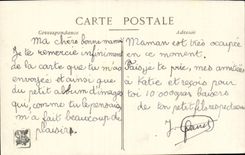 CARTE POSTALE
Ma chère bonne mama
Je te remercie infiniment
de la carte que tu m'as
envoyée et ainsi que
du petit album d'images
qui, comme tu le pensais
m'a fait beaucoup de
plaisirs.
Maman est très occupée
en ce moment.
Fais, je te prie, mes amitiés
à Katie et reçois pour
toi 10 000 gros baisers
de ton petit fils respectueux
J.